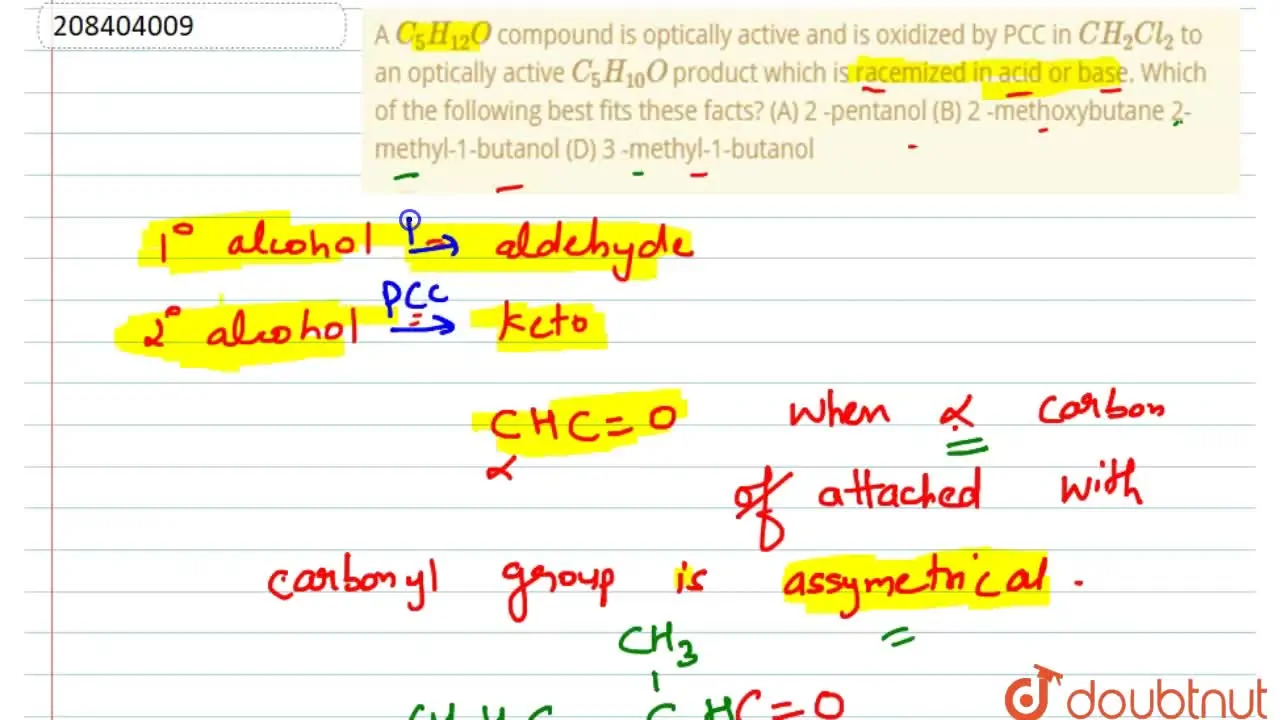 208404009
A C₅H₁₂O compound is optically active and is oxidized by PCC in CH₂Cl₂ to
an optically active C₅H₁₀O product which is racemized in acid or base. Which
of the following best fits these facts? (A) 2 -pentanol (B) 2 -methoxybutane 2-
methyl-1-butanol (D) 3 -methyl-1-butanol
P
1° alcohol → aldehyde
PCC
2° alcohol → keto
CHC=O when α carbon
α
of attached with
carbonyl group is assymetrical .
CH₃
CHC=O
doubtnut